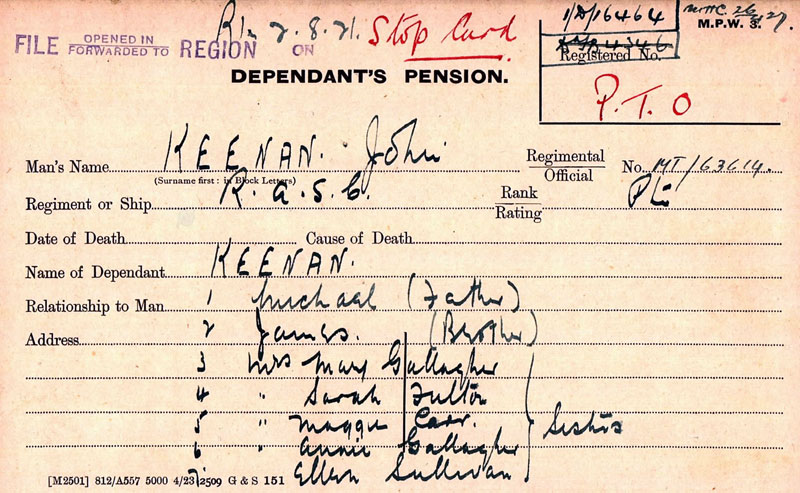 R/n 2.8.21. Stop Card
1/D/16464
26/5/27.
M.P.W. 3.
FILE OPENED IN FORWARDED TO REGION ON
Registered No.
DEPENDANT'S PENSION.
P.T.O
Man's Name KEENAN. John Regimental Official No. MT/63614.
(Surname first : in Block Letters)
Regiment or Ship R.A.S.C. Rank Rating Pte
Date of Death Cause of Death
Name of Dependant KEENAN.
Relationship to Man 1 Michael (Father)
Address 2 James. (Brother)
3 Mrs Mary Gallagher
4 " Sarah Fulton
5 " Maggie Carr.
6 " Annie Gallagher
7 " Ellen Sullivan
Sisters
[M2501] 812/A557 5000 4/23 2509 G & S 151